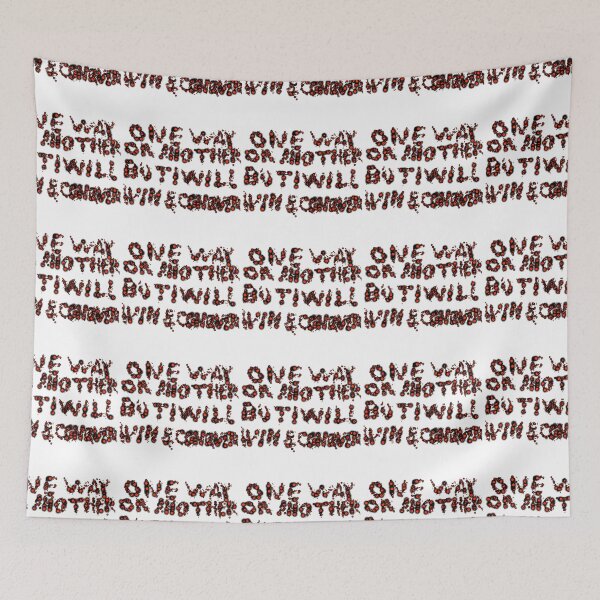 & CONQUER WIN & CONQUER WIN & CONQUER WIN & CONQUER WIN & CON
NE WAY ONE WAY ONE WAY ONE WAY ONE WAY
ANOTHER OR ANOTHER OR ANOTHER OR ANOTHER OR ANOTH
T I WILL BUT I WILL BUT I WILL BUT I WILL BUT I WIL
& CONQUER WIN & CONQUER WIN & CONQUER WIN & CONQUER WIN & CON
NE WAY ONE WAY ONE WAY ONE WAY ONE WAY
ANOTHER OR ANOTHER OR ANOTHER OR ANOTHER OR ANOTH
T I WILL BUT I WILL BUT I WILL BUT I WILL BUT I WIL
& CONQUER WIN & CONQUER WIN & CONQUER WIN & CONQUER WIN & CON
NE WAY ONE WAY ONE WAY ONE WAY ONE WAY
ANOTHER OR ANOTHER OR ANOTHER OR ANOTHER OR ANOTH
T I WILL BUT I WILL BUT I WILL BUT I WILL BUT I WIL
& CONQUER WIN & CONQUER WIN & CONQUER WIN & CONQUER WIN & CON
NE WAY ONE WAY ONE WAY ONE WAY ONE WAY
ANOTHER OR ANOTHER OR ANOTHER OR ANOTHER OR ANOTH